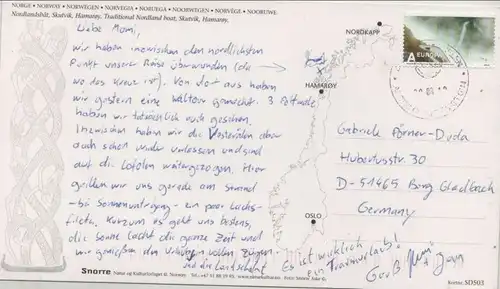 NORGE • NORWAY • NORWEGEN • NORVEGIA • NORUEGA • NOORWEGEN • NORVÈGE • NOORUWE
Nordlandsbåt, Skutvik, Hamarøy. Traditional Nordland boat, Skutvik, Hamarøy.
Liebe Momi,
wir haben inzwischen den nördlichsten
Punkt unserer Reise überwunden (da
wo das Kreuz ist). Von dort aus haben
wir gestern eine Waltour gemacht. 3 Pottwale
haben wir tatsächlich auch gesehen.
Inzwischen haben wir die Vesterålen aber
auch schon wieder verlassen und sind
auf die Lofoten weitergezogen. Hier
grillen wir uns gerade am Strand
- bei Sonnenuntergang - ein paar Lachs-
filets. Kurzum es geht uns bestens,
die Sonne lacht die ganze Zeit und
wir genießen den Urlaub in vollen Zügen
und die Landschaft
Es ist wirklich
ein Traumurlaub!
Gruß
NORDKAPP
HAMARØY
OSLO
A EUROPA
Gabriele Börner-Duda
Hubertusstr. 30
D-51465 Berg. Gladbach
Germany
Snorre Natur og Kulturforlaget ©, Norway.
Kortnr. SD503